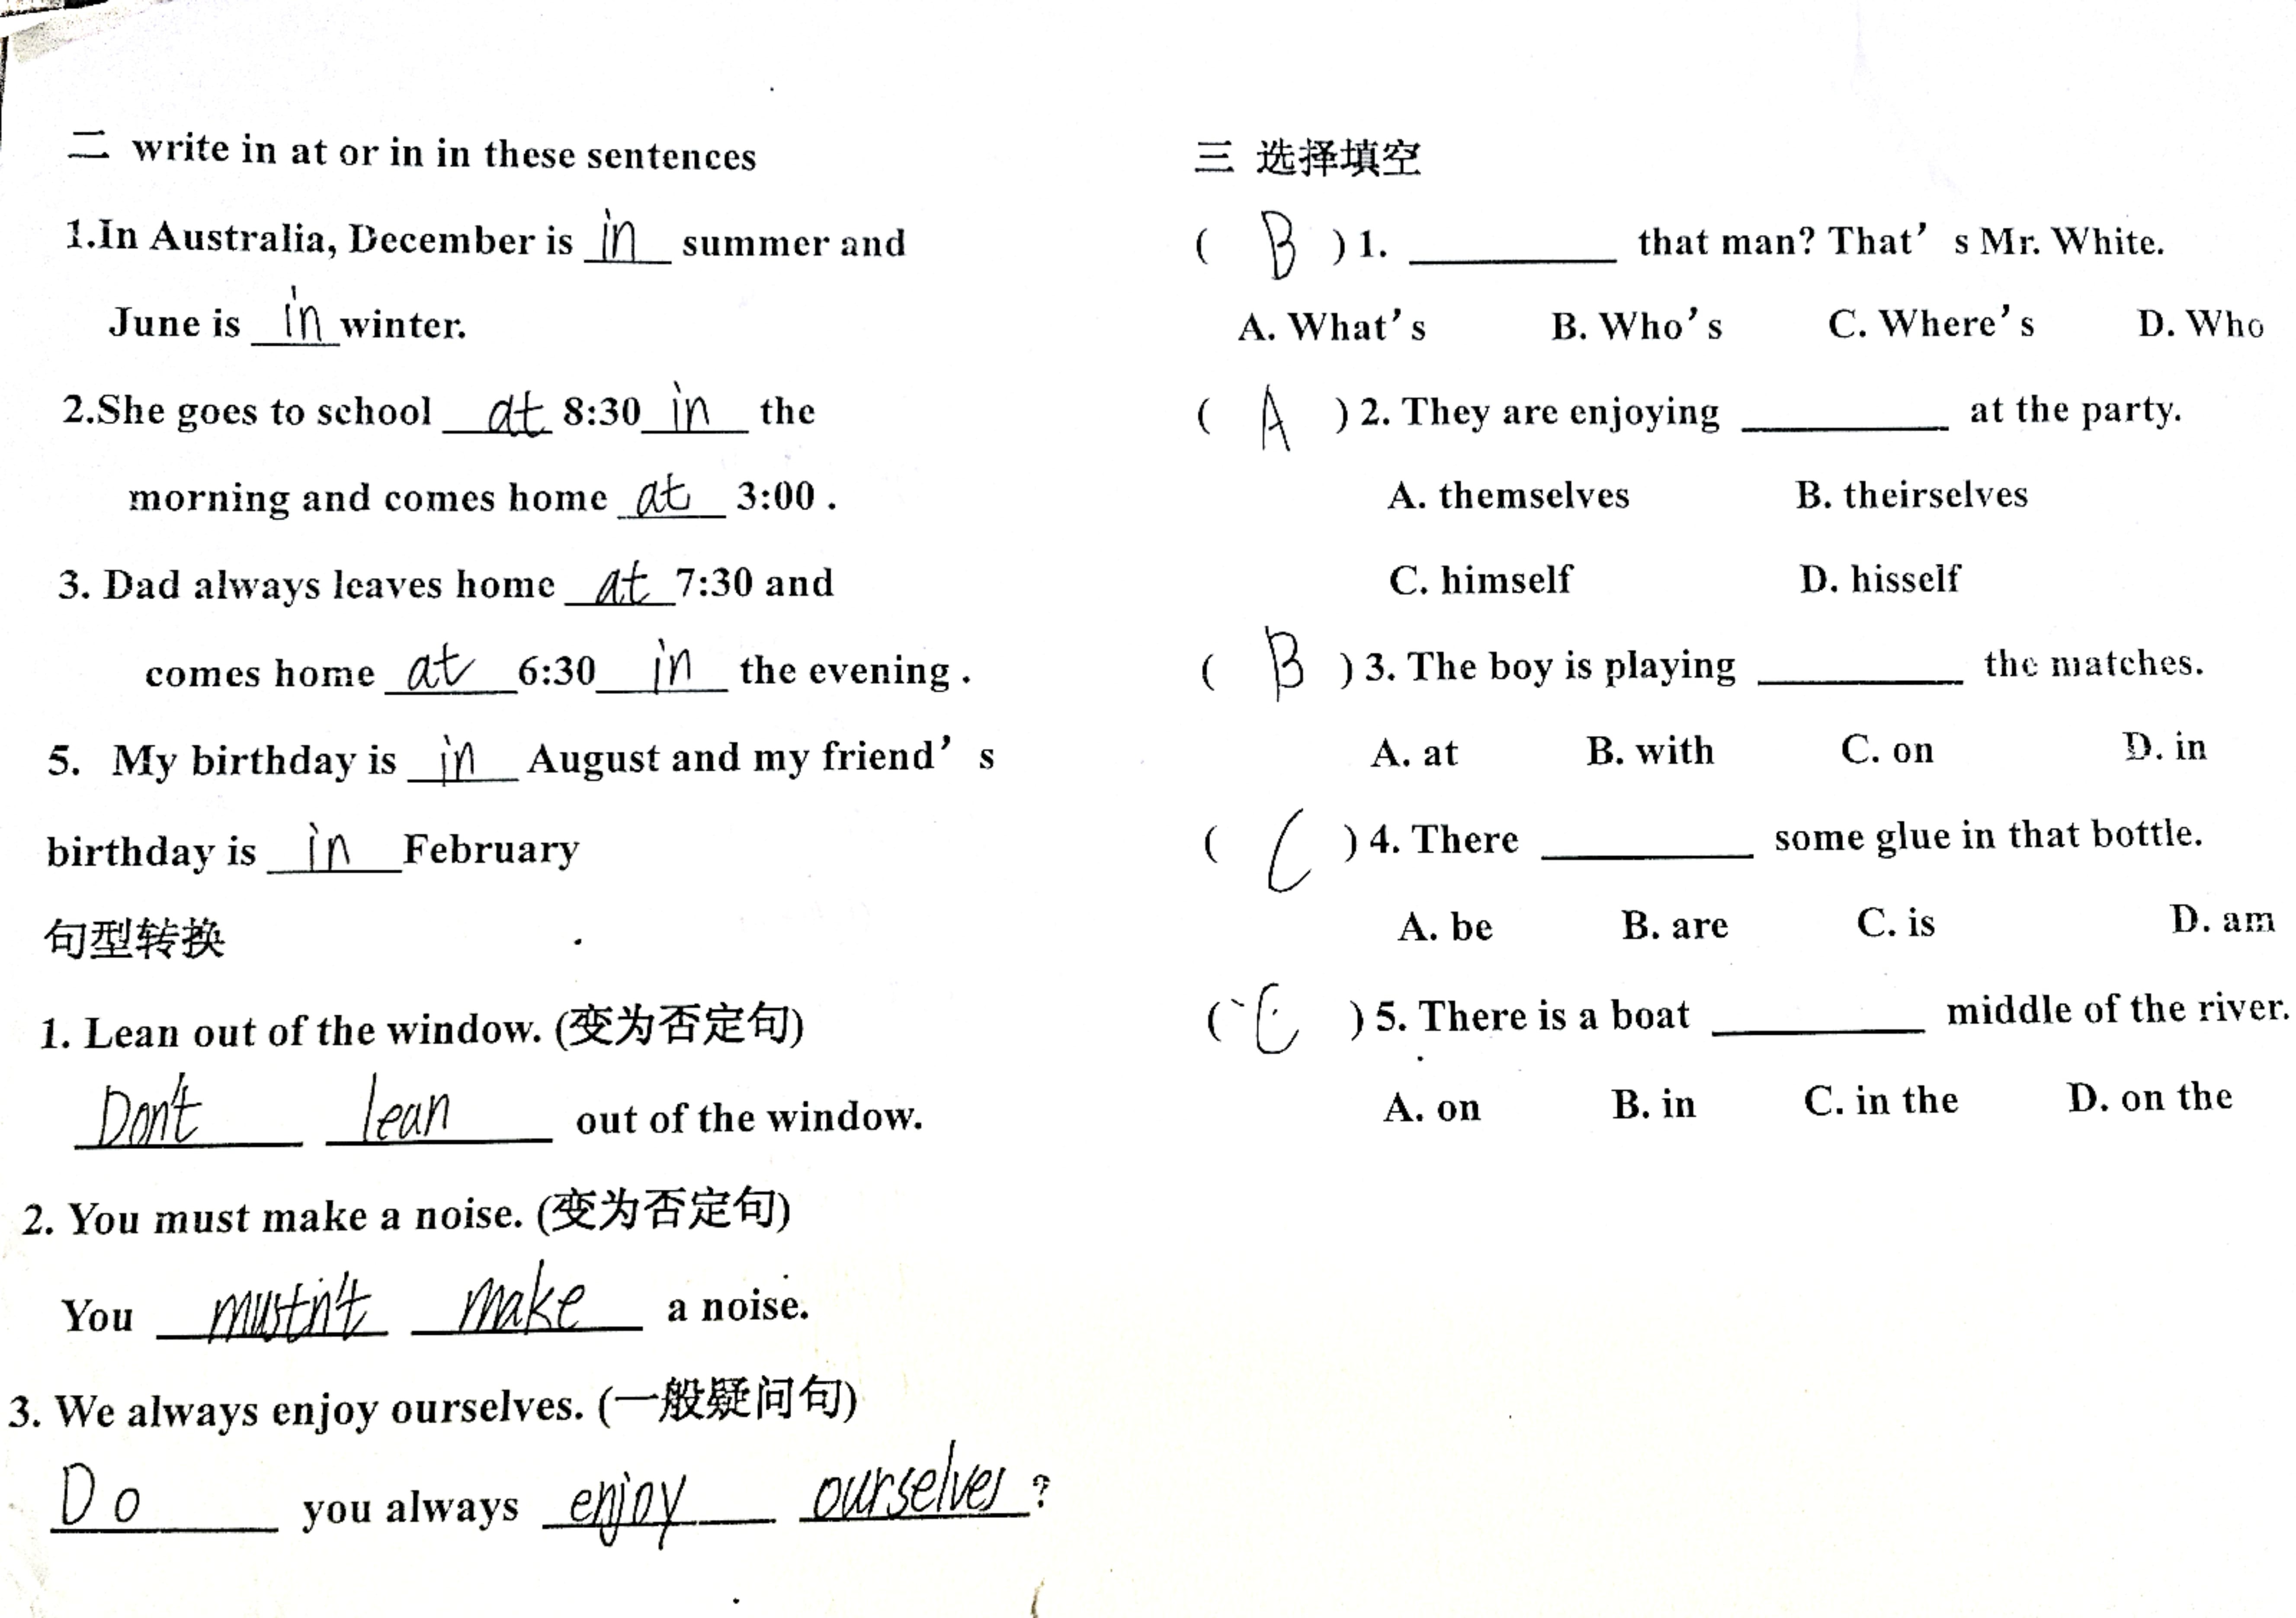 二 write in at or in in these sentences
1.In Australia, December is in summer and
June is in winter.
2.She goes to school at 8:30 in the
morning and comes home at 3:00 .
3. Dad always leaves home at 7:30 and
comes home at 6:30 in the evening .
5. My birthday is in August and my friend’ s
birthday is in February
句型转换
1. Lean out of the window. (变为否定句)
Don't lean out of the window.
2. You must make a noise. (变为否定句)
You mustn't make a noise.
3. We always enjoy ourselves. (一般疑问句)
Do you always enjoy ourselves ?
三 选择填空
( B ) 1. ________ that man? That’ s Mr. White.
A. What’s B. Who’s C. Where’s D. Who
( A ) 2. They are enjoying ________ at the party.
A. themselves B. theirselves
C. himself D. hisself
( B ) 3. The boy is playing ________ the matches.
A. at B. with C. on D. in
( C ) 4. There ________ some glue in that bottle.
A. be B. are C. is D. am
( C ) 5. There is a boat ________ middle of the river.
A. on B. in C. in the D. on the